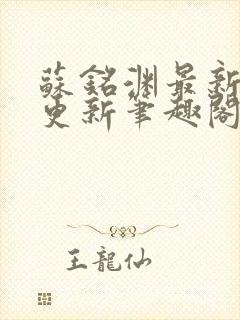 蘇銘淵最新
更新筆趣閣
王龍仙